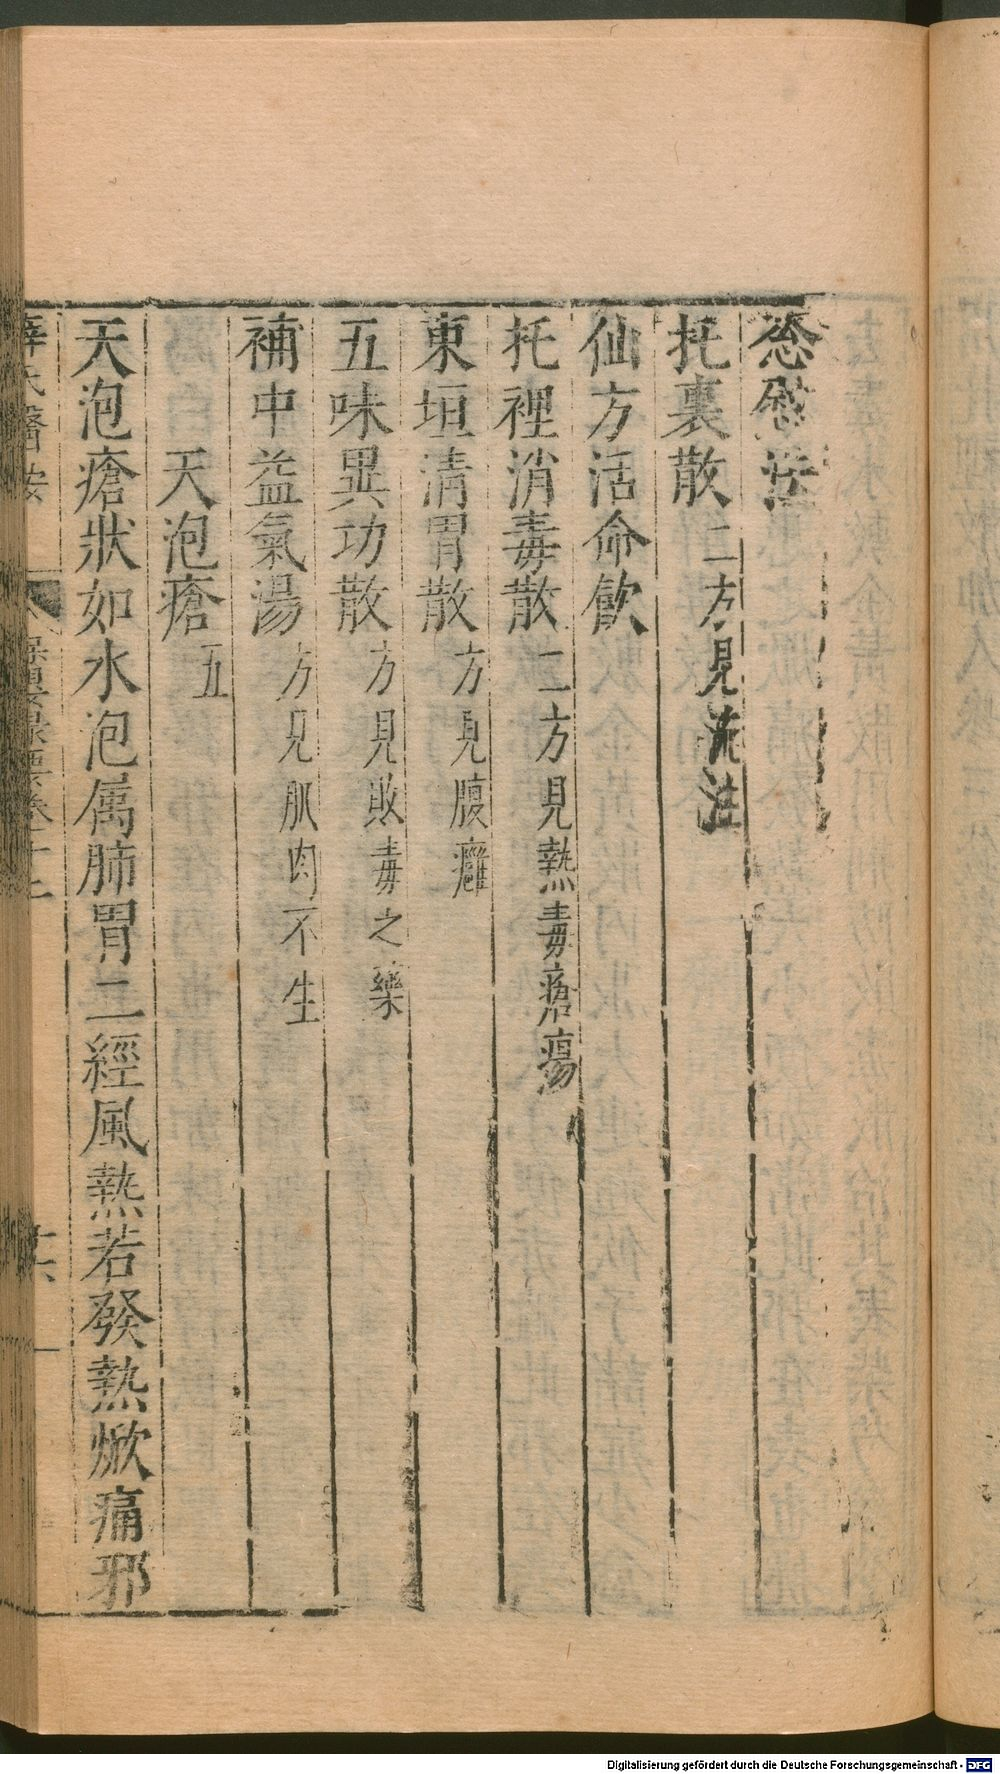 葱熨法
托裏散二方見流注
仙方活命飲
托裡消毒散二方見熱毒瘡瘍
東垣清胃散方見腹癰
五味異功散方見敗毒之藥
補中益氣湯方見肌肉不生
天泡瘡五
天泡瘡狀如水泡属肺胃二經風熱若發熱焮痛邪
薛氏醫按
保嬰撮要卷十二
Digitalisierung gefördert durch die Deutsche Forschungsgemeinschaft - DFG